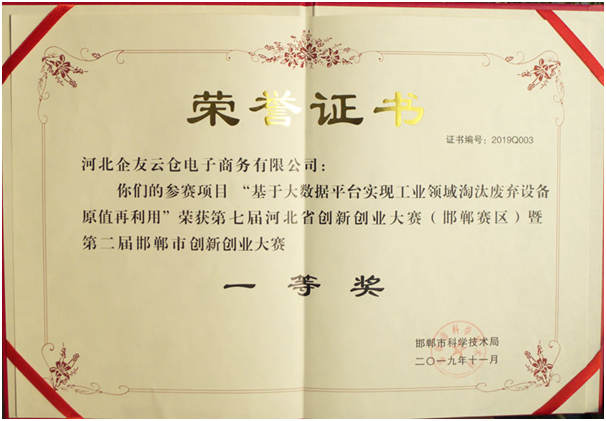 荣誉证书
证书编号：2019Q003
河北企友云仓电子商务有限公司：
你们的参赛项目“基于大数据平台实现工业领域淘汰废弃设备
原值再利用”荣获第七届河北省创新创业大赛（邯郸赛区）暨
第二届邯郸市创新创业大赛
一等奖
邯郸市科学技术局
二〇一九年十一月